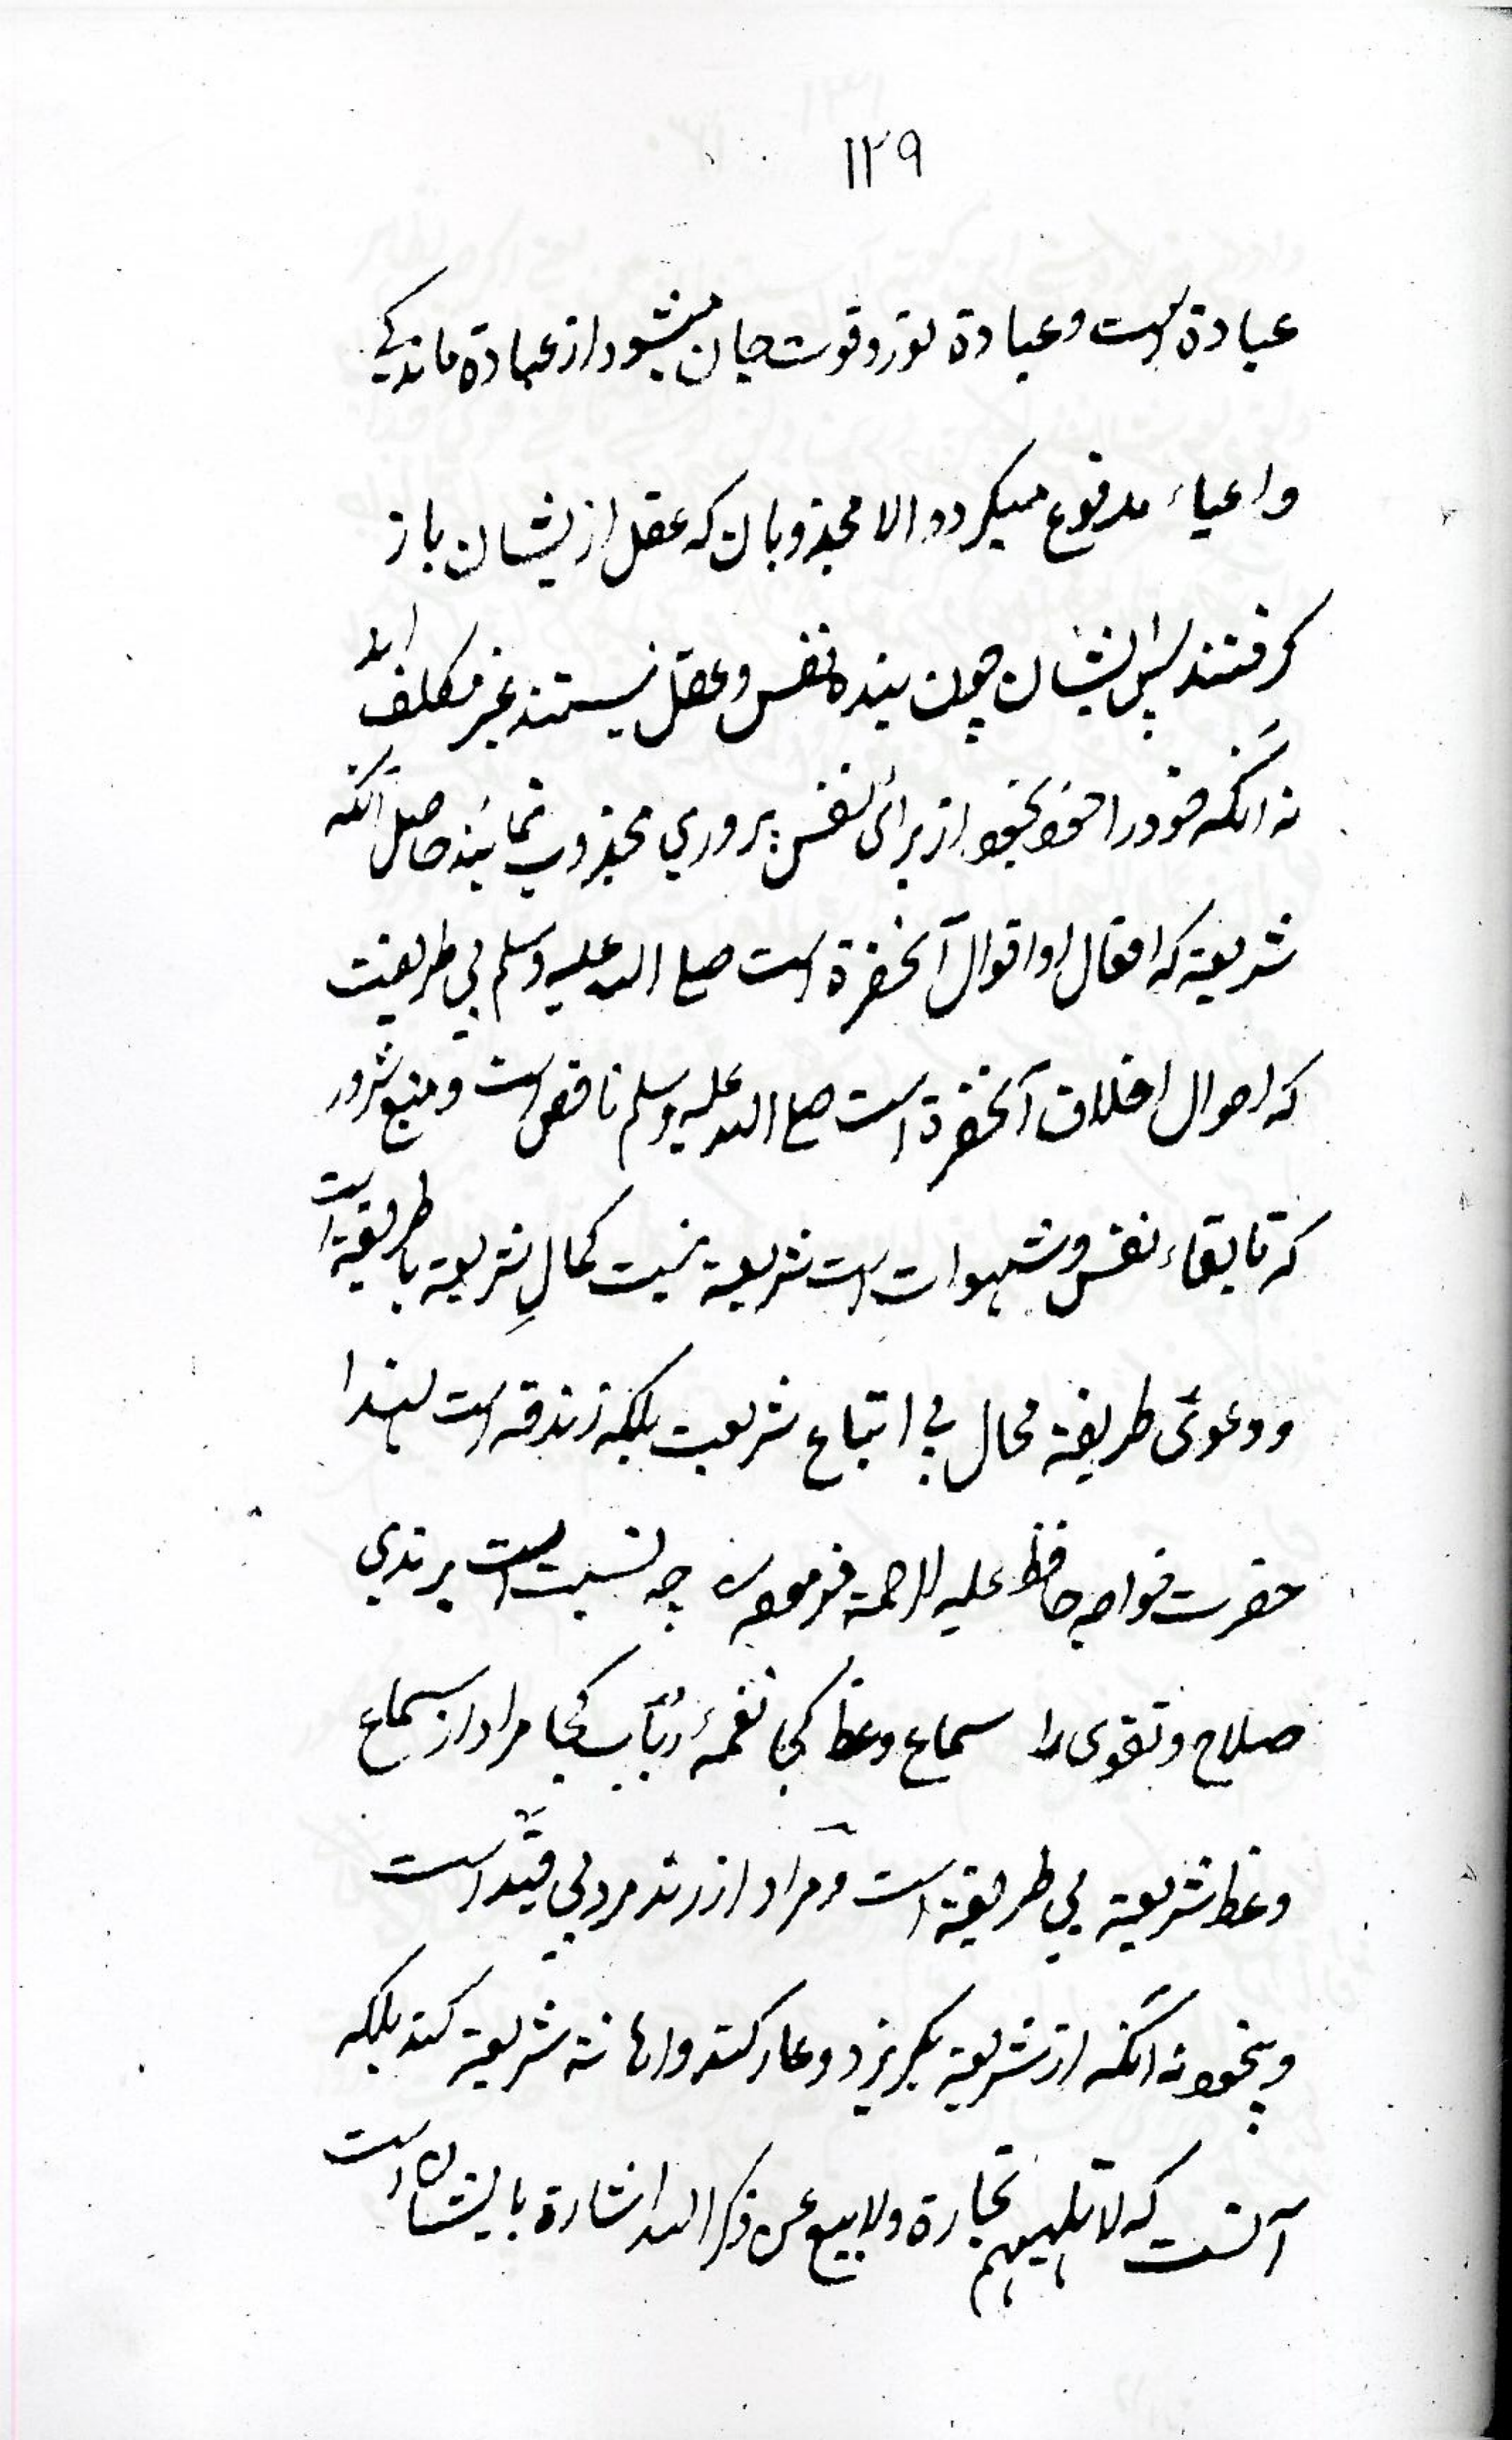 ١٢٩
عبادة است و عبادة نور و قوت جان میشود از عبادة ماندکی
و اعیاء مدفوع میکردد الا مجذوبان که عقل ازیشان باز
کرفتند پس ایشان چون بنده نفس و عقل نیستند غیر مکلف اند
نه آنکه خود را خود بخود از برائ نفس پروری مجذوب نمایند حاصل آنکه
شریعة که افعال و اقوال آنحضرة است صلی الله علیه وسلم بی طریقت
که احوال اخلاق آنحضرة است صلی الله علیه وسلم ناقص است و منبع شرور
که تا بقاء نفس و شهوات است شریعة نیست کمالِ شریعة با طریقة است
و دعویٔ طریقة محال بی اتباع شریعت بلکه زندقه است لهذا
حضرت خواجه حافظ علیه الرحمة فرموده چه نسبت است برندی
صلاح و تقوی را سماع وعظ کجا نغمهٔ رُباب کجا مراد از سماع
وعظ شریعة بی طریقة است و مراد از رند مرد بی قید است
و بیخود نه آنکه از شریعة بکریزد و عار کند و اهانة شریعة کند بلکه
آنست که لا تلهیهم تجارة ولا بیع عن ذکر الله اشارة بایشان است